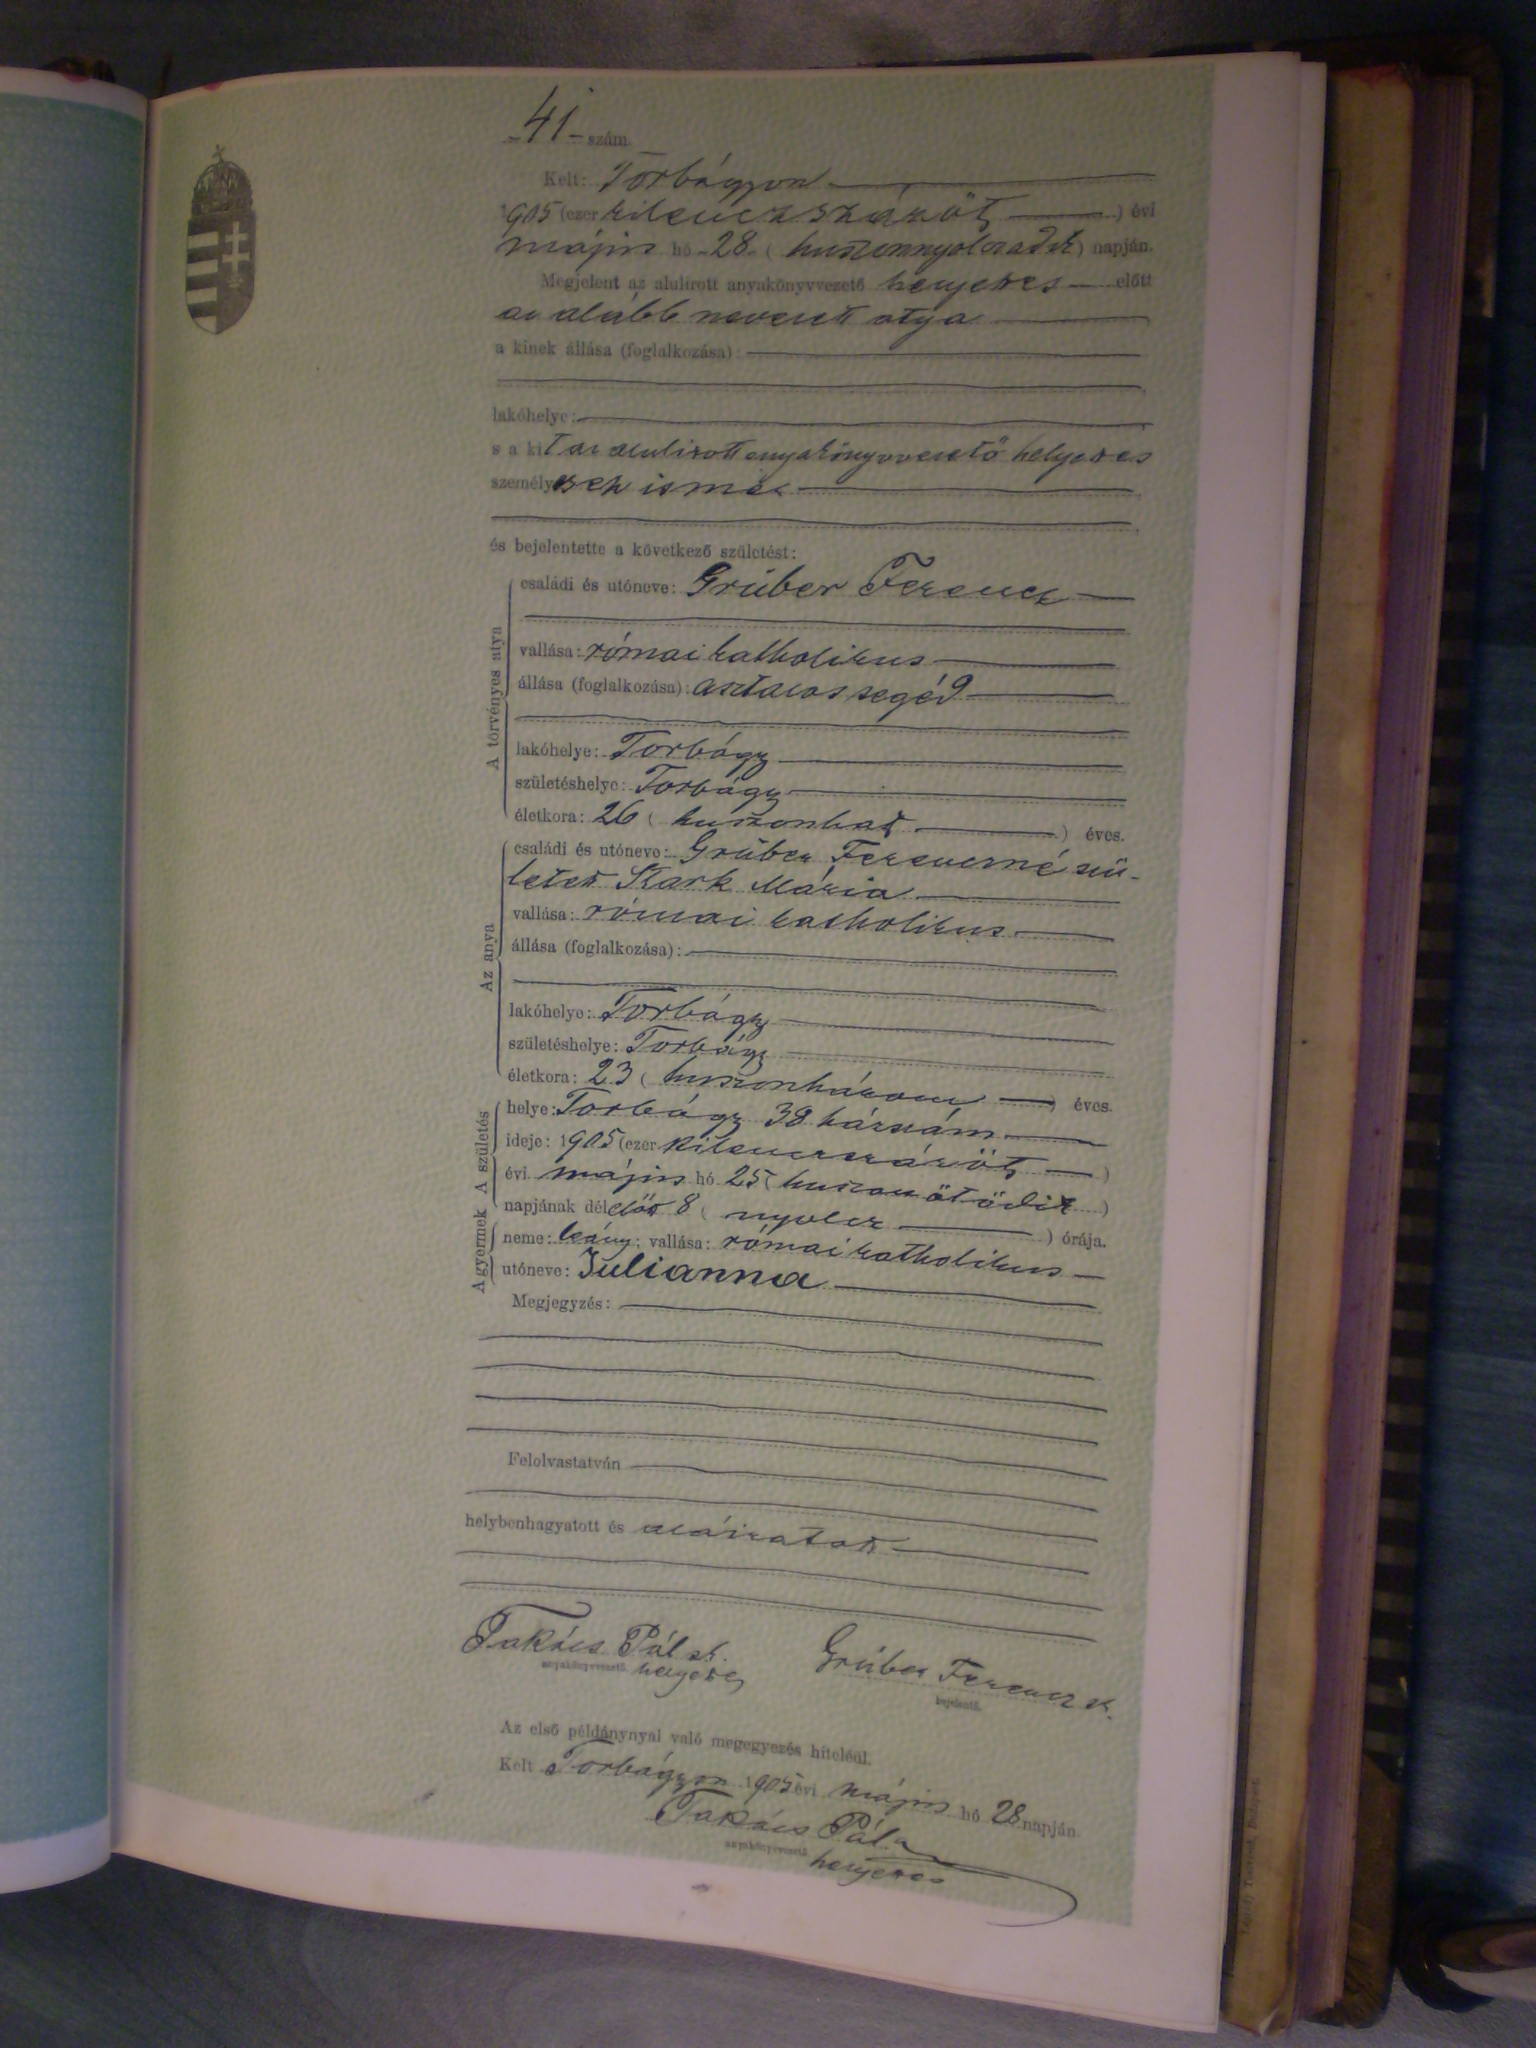 -41- szám.
Kelt: Torbágyon
1905 (ezer kilenczszázöt) évi
május hó 28 (huszonnyolczadik) napján.
Megjelent az alulirott anyakönyvvezető helyettes előtt
az alább nevezett atya
a kinek állása (foglalkozása):
lakóhelye:
s a kit az alulirott anyakönyvvezető helyettes
személyesen ismer
és bejelentette a következő születést:
A törvényes atya
családi és utóneve: Grúber Ferencz
vallása: római katholikus
állása (foglalkozása): asztalos segéd
lakóhelye: Torbágy
születéshelye: Torbágy
életkora: 26 (huszonhat) éves.
Az anya
családi és utóneve: Grúber Ferenczné szü-
letett Stark Mária
vallása: római katholikus
állása (foglalkozása):
lakóhelye: Torbágy
születéshelye: Torbágy
életkora: 23 (huszonhárom) éves.
A születés
helye: Torbágy 38 házszám
ideje: 1905 (ezer kilenczszázöt)
évi május hó 25 (huszonötödik)
napjának délelőtt 8 (nyolcz) órája.
A gyermek
neme: leány; vallása: római katholikus
utóneve: Julianna
Megjegyzés:
Felolvastatván
helybenhagyatott és aláiratott
Takács Pál sk. Grúber Ferencz sk.
anyakönyvvezető helyettes bejelentő.
Az első példánynyal való megegyezés hiteléül.
Kelt Torbágyon 1905 évi május hó 28 napján
Takács Pál
anyakönyvvezető helyettes